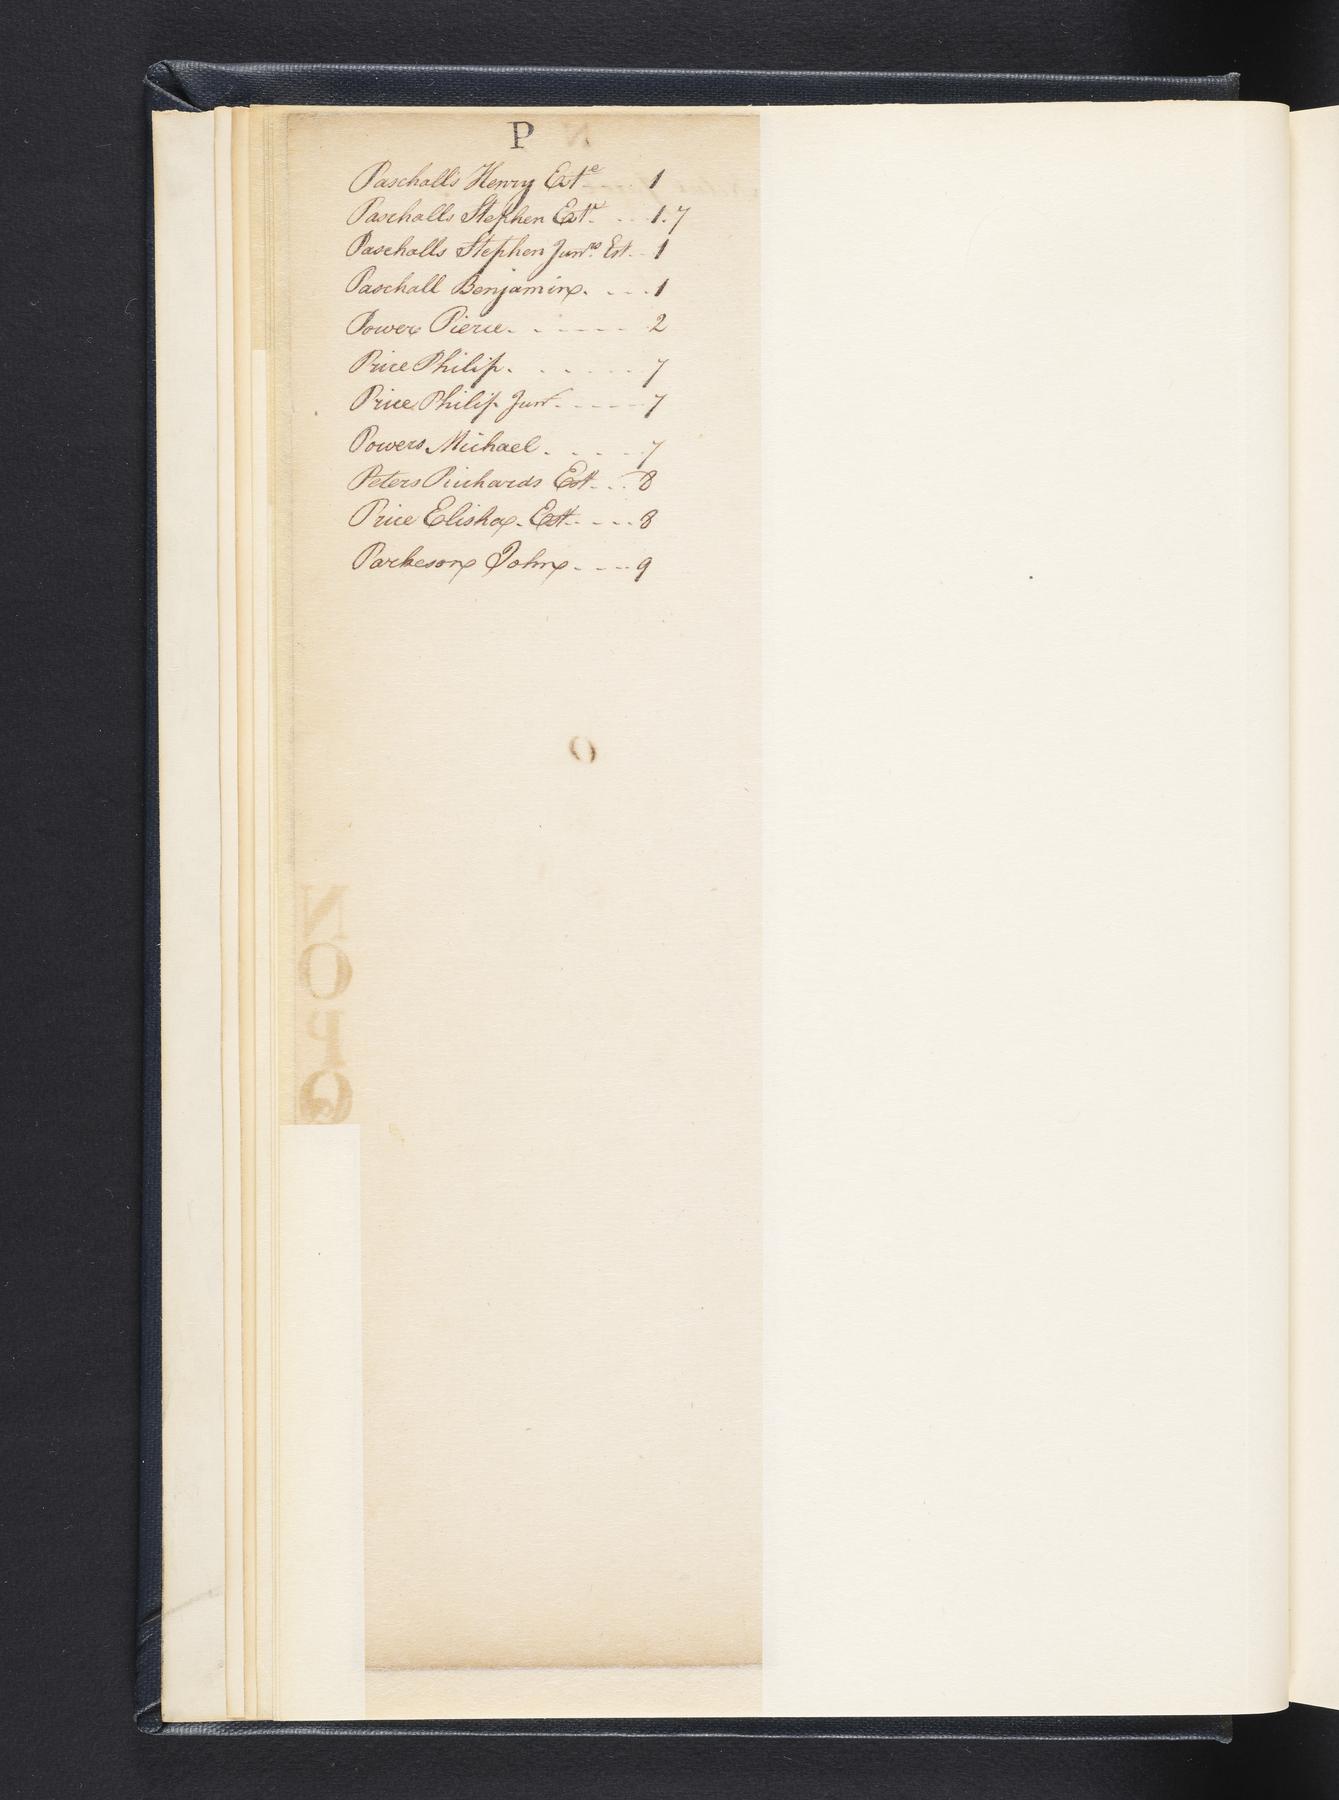 P
Paschalls Henry Est.e 1
Paschalls Stephen Est.e . . . 1.7
Paschalls Stephen Junrs. Est. . 1
Paschall Benjamin. . . . 1
Power Pierce. . . - - - - 2
Price Philip. . . . . . 7
Price Philip Junr. - - - - 7
Powers Michael . . . . . 7
Peters Richards Est. . . . 8
Price Elisha. Est. - - - - 8
Parkeson John. - - - 9
O
N
O
P
Q